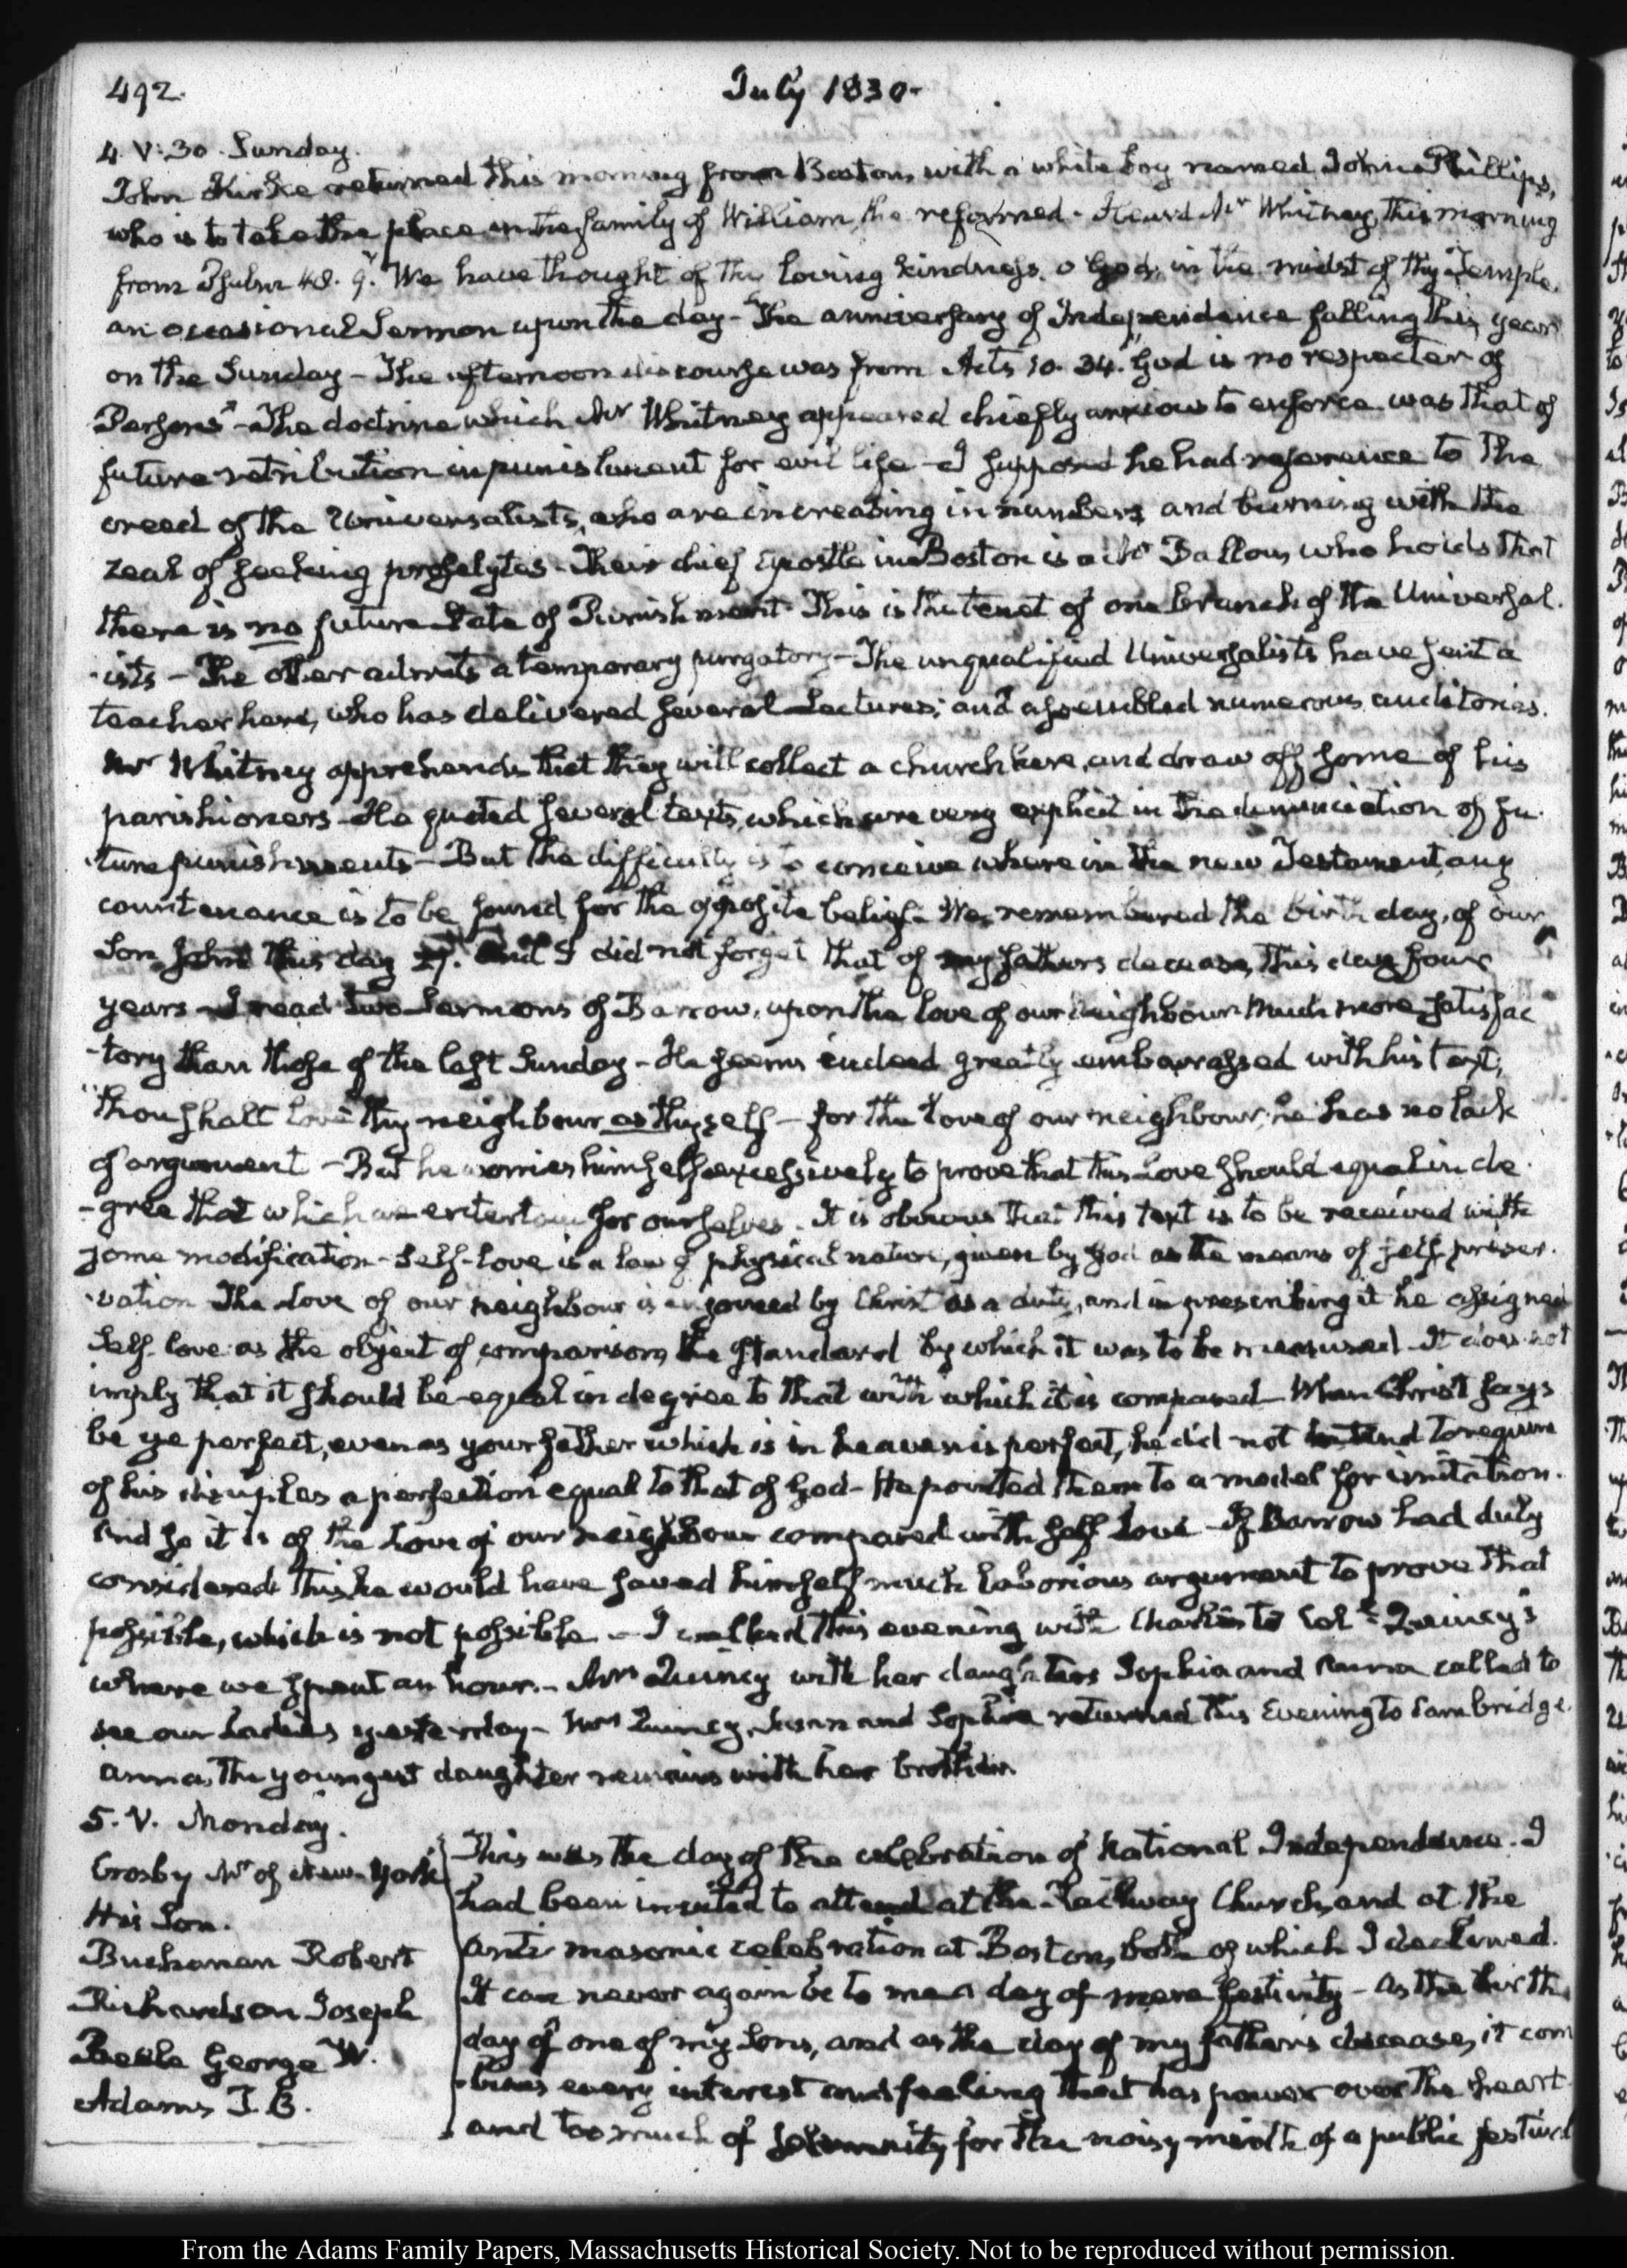 492.
July 1830.
4. V:30. Sunday.
John Kirke returned this morning from Boston, with a white boy named John Phillips,
who is to take the place in the family of William, the reformed. Heard Mr Whitney, this morning
from Psalm 48. 9. "We have thought of thy loving kindness, O God, in the midst of thy Temple.
an occasional Sermon upon the day - The anniversary of Independence falling this year
on the Sunday - The afternoon discourse was from Acts 10. 34. "God is no respecter of
Persons" - The doctrine which Mr Whitney appeared chiefly anxious to enforce was that of
future retribution in punishment for evil life - I supposed he had reference to the
creed of the Universalists, who are increasing in numbers and burning with the
zeal of seeking proselytes - Their chief Apostle in Boston is a Mr Ballou, who holds that
there is no future State of Punishment. This is the tenet of one branch of the Universal-
-ists - The other admits a temporary purgatory - The unqualified Universalists have sent a
teacher here, who has delivered several Lectures; and assembled numerous auditories.
Mr Whitney apprehends that they will collect a church here, and draw off some of his
parishioners - He quoted several texts, which are very explicit in the denunciation of fu-
-ture punishments - But the difficulty is to conceive where in the new Testament, any
countenance is to be found for the opposite belief. We remembered the birth day, of our
Son John this day 27. And I did not forget that of my father's decease, this day four
years - I read two Sermons of Barrow, upon the love of our neighbour much more satisfac
-tory than those of the last Sunday - He seems indeed greatly embarrassed with his text,
"thou shalt love thy neighbour as thyself - for the love of our neighbour, he has no lack
of argument - But he worries himself excessively to prove that this Love should equal in de-
-gree that which we entertain for ourselves. It is obvious that this text is to be received with
some modification - Self-love is a law of physical nature, given by God as the means of self-preser-
-vation The Love of our neighbour is enjoined by Christ as a duty, and in prescribing it he assigned
Self-love as the object of comparison, the standard by which it was to be measured - It does not
imply that it should be equal in degree to that with which it is compared - When Christ says
be ye perfect, even as your father which is in heaven is perfect, he did not intend to require
of his disciples a perfection equal to that of God - He pointed them to a model for imitation.
And so it is of the Love of our neighbour compared with self Love - If Barrow had duly
considered this he would have saved himself much laborious argument to prove that
possible, which is not possible - I walked this evening with Charles to Col. Quincy's
where we spent an hour. - Mrs Quincy with her daughters Sophia and Anna called to
see our Ladies yesterday - Mrs Quincy, Susan and Sophia returned this Evening to Cambridge.
Anna, the youngest daughter remains with her brother.
5. V. Monday.
Crosby Mr of New-York
His Son.
Buchanan Robert
Richardson Joseph
Beale George W.
Adams T. B.
This was the day of the celebration of National Independence. I
had been invited to attend at the Church, and at the
anti masonic celebration at Boston, both of which I declined.
It can never again be to me a day of mere festivity - As the birth
day of one of my Sons, and as the day of my father's decease, it com
-bines every interest and feeling that has power over the heart
and too much of solemnity for the noisy mirth of a public festival
From the Adams Family Papers, Massachusetts Historical Society. Not to be reproduced without permission.